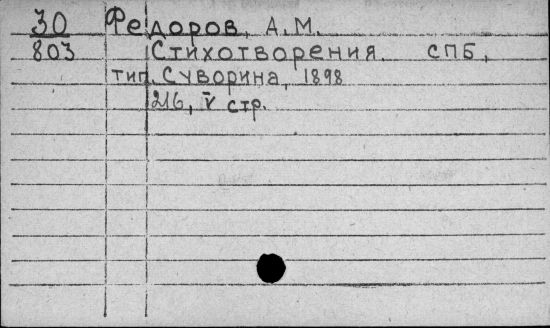 30 Федоров, А.М.
803 Стихотворения. СПБ,
тип. Суворина, 1898
216, V стр.